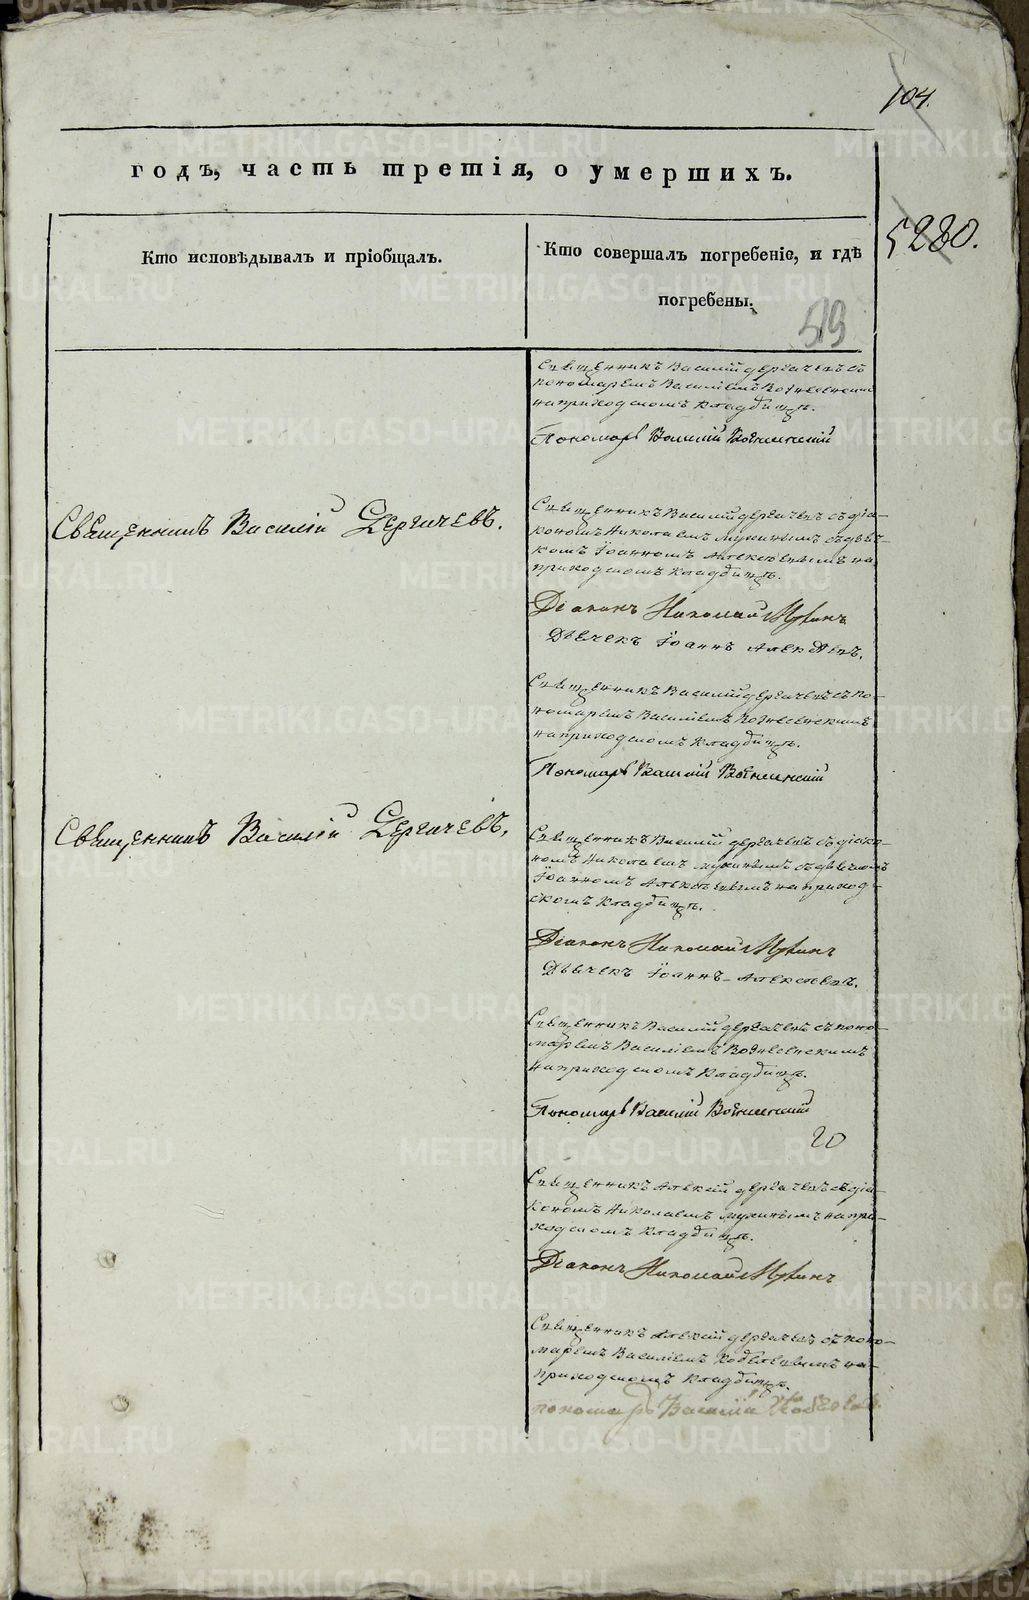 104.
годъ, часть третія, о умершихъ.
5280.
Кто исповѣдывалъ и пріобщалъ.
Кто совершалъ погребеніе, и гдѣ
погребены.
519
Священникъ Василій Дергачевъ съ
пономаремъ Василіемъ Вознесенскимъ
на приходскомъ кладбищѣ.
Пономарь Василій Вознесенскій
Священникъ Василій Дергачевъ.
Священникъ Василій Дергачевъ съ діа-
кономъ Николаемъ Мухинымъ съ дьяч-
комъ Іоанномъ Алексѣевымъ на
приходскомъ кладбищѣ.
Діаконъ Николай Мухинъ
Дьячекъ Іоаннъ Алексѣевъ.
Священникъ Василій Дергачевъ съ по-
номаремъ Василіемъ Вознесенскимъ
на приходскомъ кладбищѣ.
Пономарь Василій Вознесенскій
Священникъ Василій Дергачевъ.
Священникъ Василій Дергачевъ съ діако-
номъ Николаемъ Мухинымъ съ дьячкомъ
Іоанномъ Алексѣевымъ на приход-
скомъ кладбищѣ.
Діаконъ Николай Мухинъ
Дьячекъ Іоаннъ Алексѣевъ.
Священникъ Василій Дергачевъ съ поно-
маремъ Василіемъ Вознесенскимъ
на приходскомъ кладбищѣ.
Пономарь Василій Вознесенскій
20
Священникъ Алексѣй Дергачевъ съ діа-
кономъ Николаемъ Мухинымъ на при-
ходскомъ кладбищѣ.
Діаконъ Николай Мухинъ
Священникъ Алексѣй Дергачевъ съ поно-
маремъ Василіемъ на-
приходскомъ кладбищѣ.
пономарь Василій
METRIKI.GASO-URAL.RU